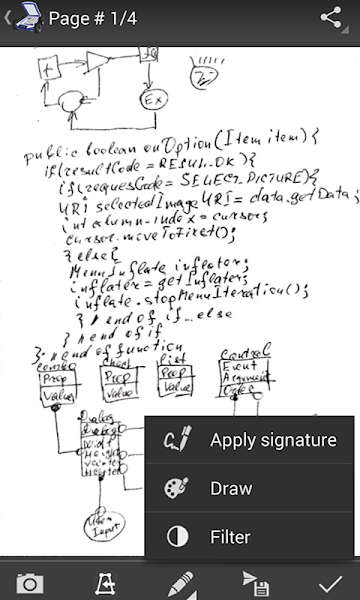 Page # 1/4
Ex
public boolean onOption(Item item){
if(resultCode = RESUL_OK){
if(requesCode = SELECT_PICTURE){
URI selectedImageURI = data.getData;
int column-index = cursor;
cursor.moveToFirst();
} else{
MenuInflate inflater;
inflater = getInflater;
inflate.stopMenuIteration();
} // end of if...else
} // end of if
}. // end of function
combo
Prop
Value
Prop
Value
List
Prop
Value
Control
Event
Argument
Order
Dialog
Dialog
Widt
Height
User
Input
Apply signature
Draw
Filter